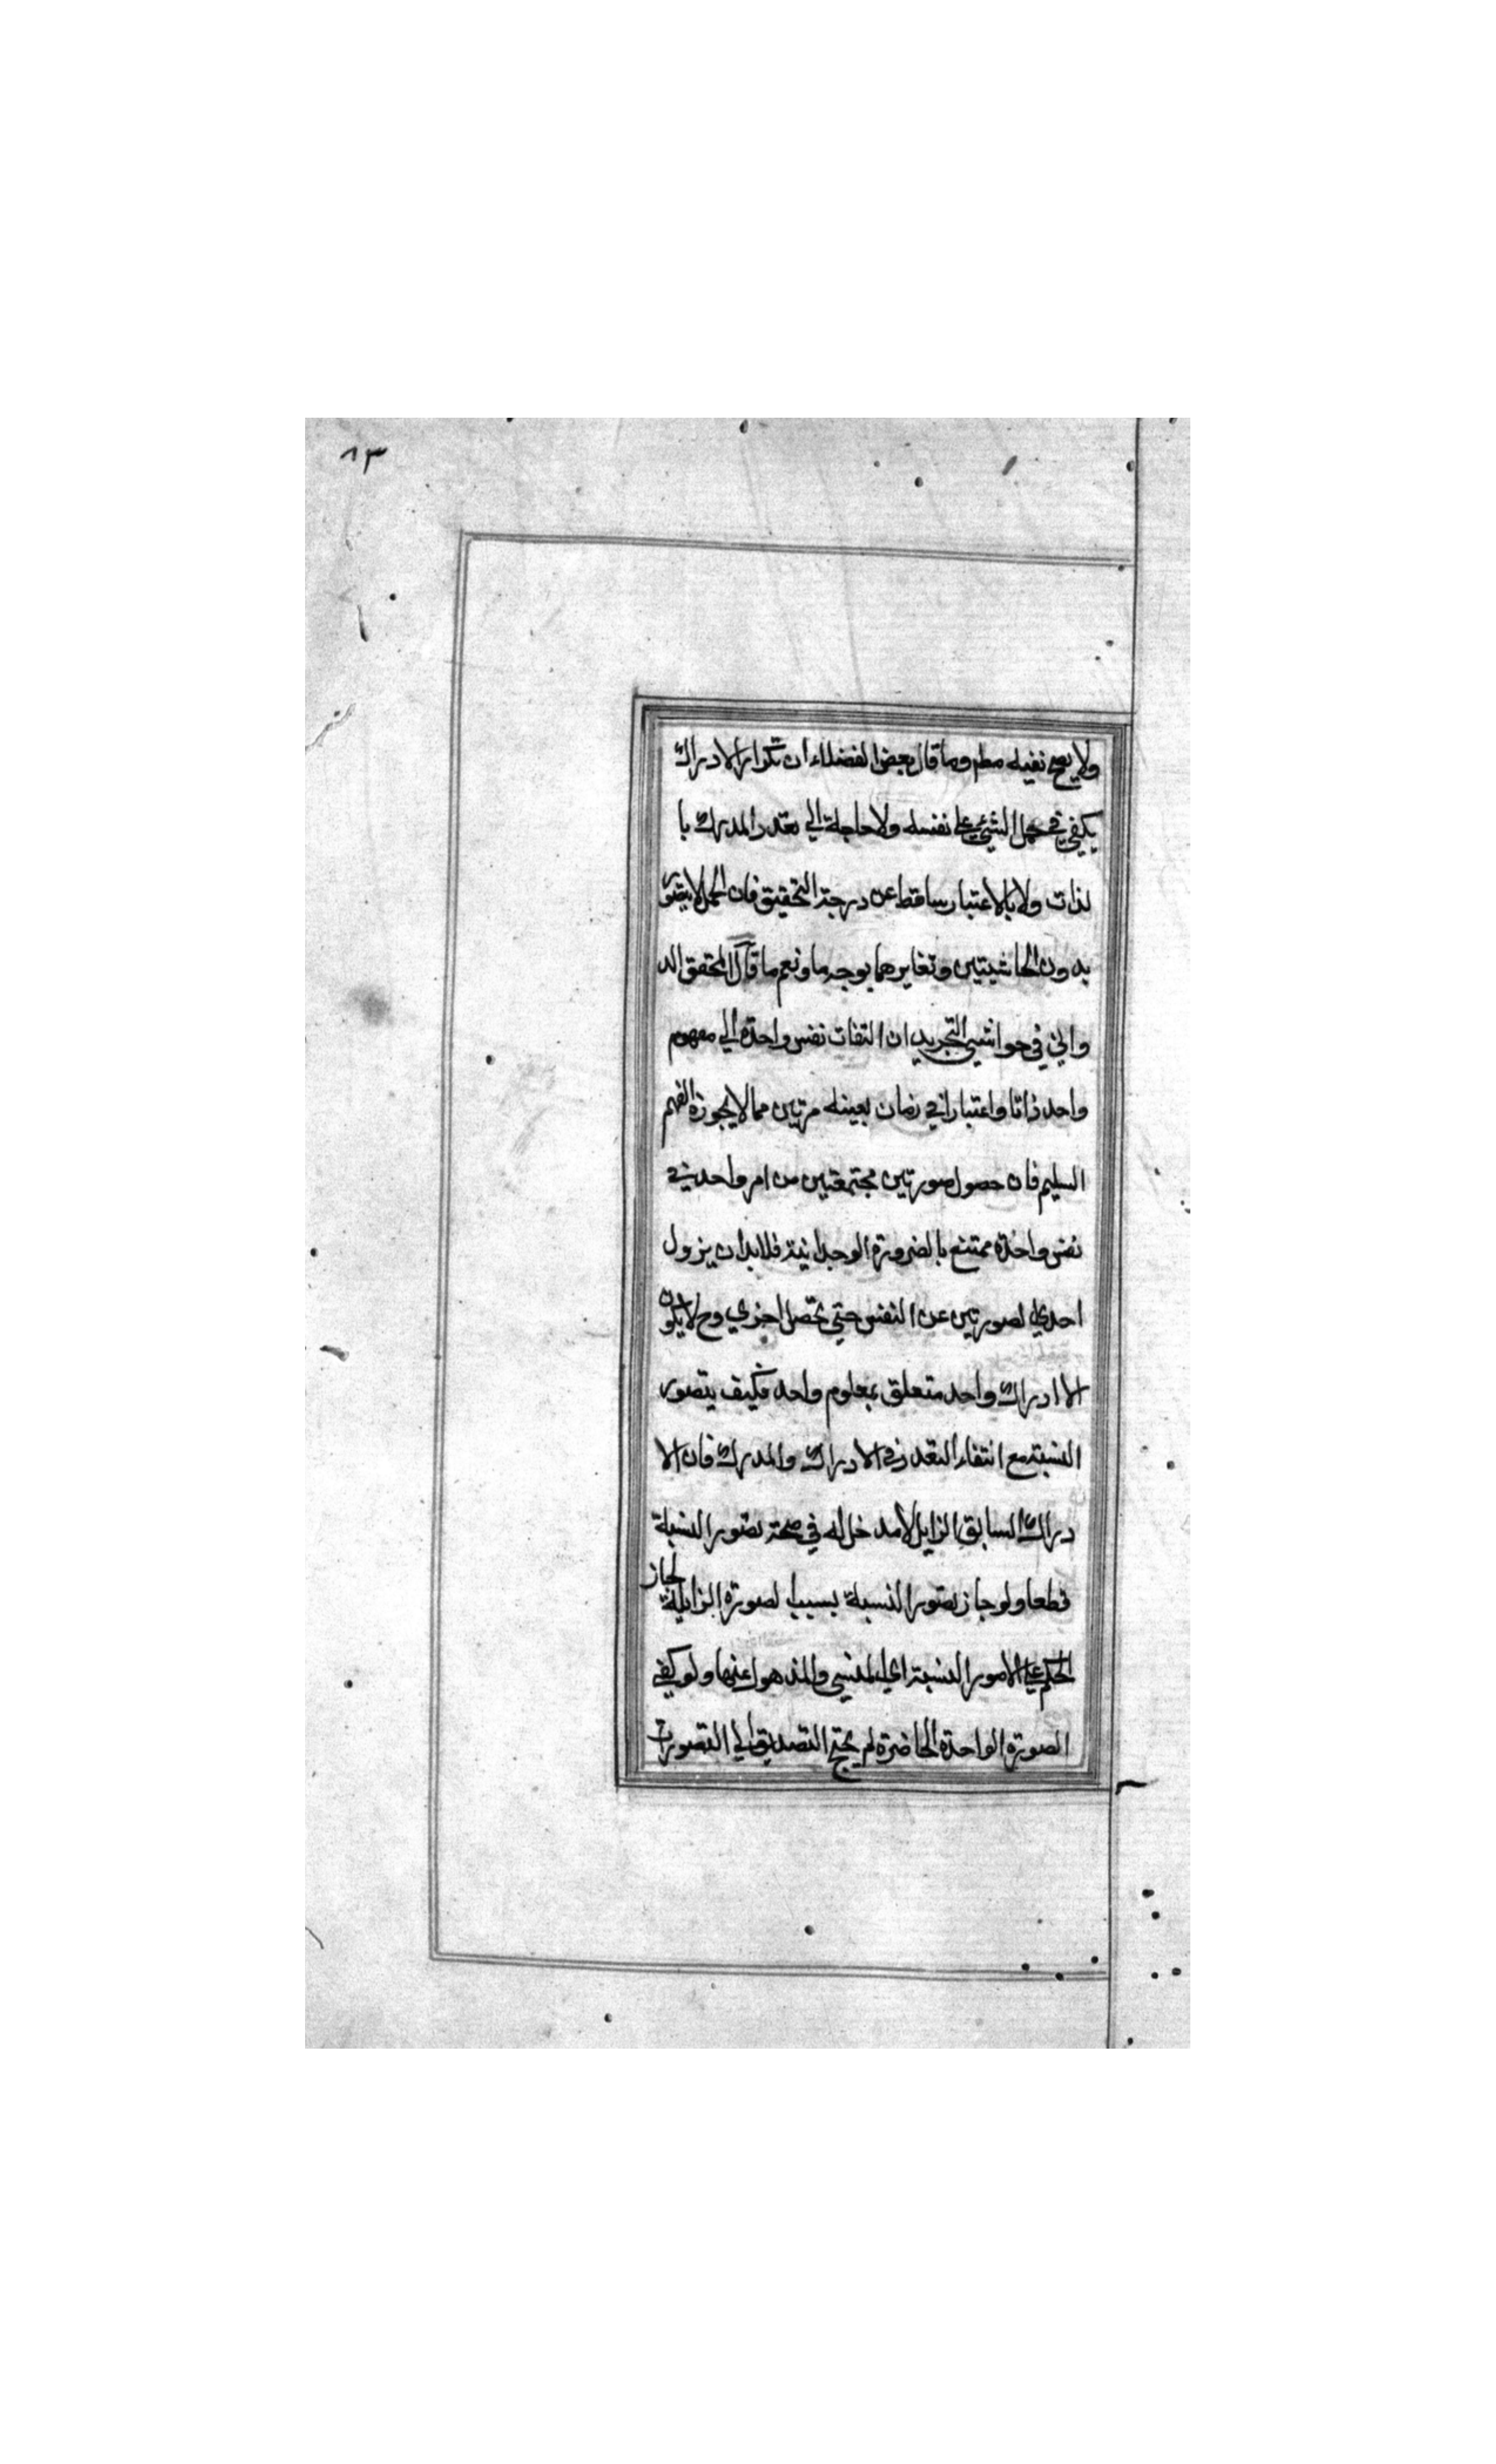 ٨٣
ولا يصح نفيه مطم وما قال بعض الفضلاء ان تكرار الادراك
يكفي في حمل الشيئ علي نفسه ولا حاجة الي تعدد المدرك با
لذات ولا بالاعتبار ساقط عن درجة التحقيق فان الحمل لا يتصور
بدون الحاشيتين وتغايرهما بوجه ما ونعم ما قال المحقق الد
واني في حواشي التجريد ان التفات نفس واحدة الي مفهوم
واحد ذاتا واعتبارا في زمان بعينه مرتين مما لا يجوزه الفهم
السليم فان حصول صورتين مجتمعتين من امر واحد في
نفس واحدة ممتنع بالضرورة الوجدانية فلا بد ان يزول
احدي لصورتين عن النفس حتي تحصل اخري وح لا يكون
الا ادراك واحد متعلق بمعلوم واحد فكيف يتصور
النسبة مع انتفاء التعدد في الادراك والمدرك فان الا
دراك السابق الزايل لا مدخل له في صحة تصور النسبة
قطعا ولو جاز تصور النسبة بسبب لصورة الزايلة لجاز
الحكم علي الامور النسبة اي المنسي والمذهول عنها ولو كفي
الصورة الواحدة الحاضرة لم يحتج التصديق الي التصورات